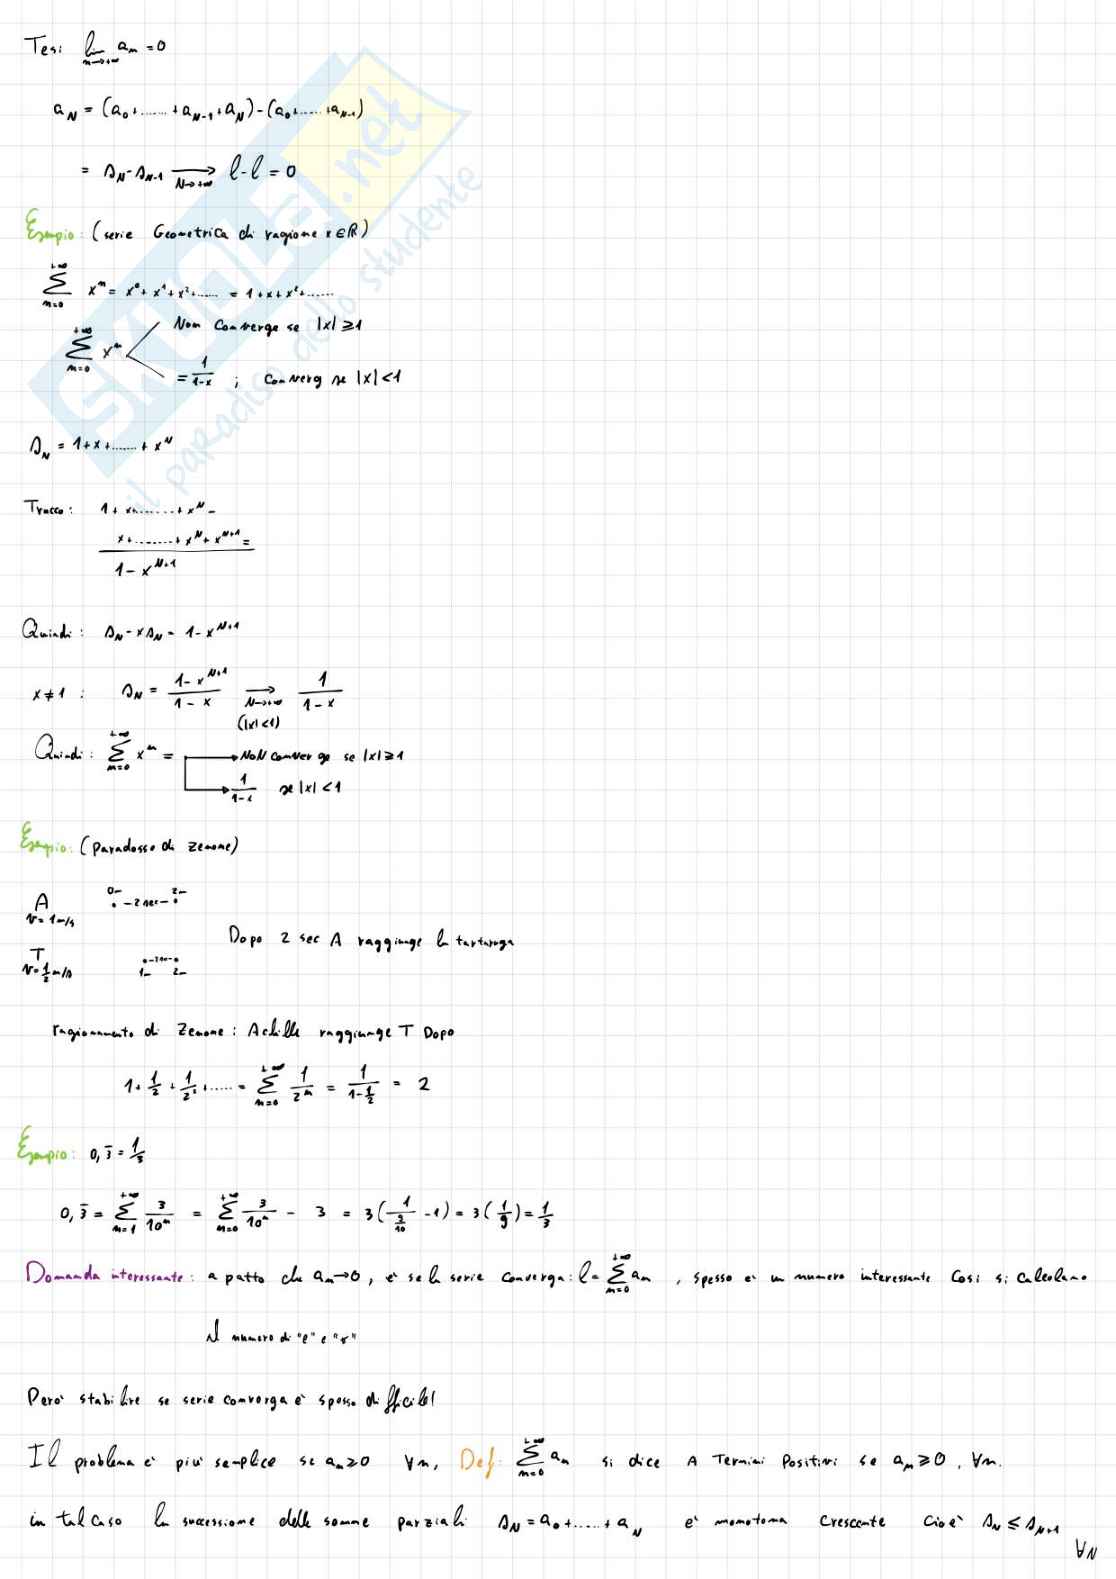 Tesi lim n→+∞ an = 0
aN = (a0+......+aN-1+aN)-(a0+......+aN-1)
= sN-sN-1 → N→+∞ l-l = 0
Esempio: (serie Geometrica di ragione x∈R)
+∞ Σ n=0 xⁿ = x⁰+x¹+x²+...... = 1+x+x²+......
Non Converge se |x|≥1
+∞ Σ n=0 xⁿ
= 1/1-x ; Converg se |x|<1
sN = 1+x+.......+x^N
Trucco: 1+x+.......+x^N -
x+........+x^N+x^N+1 =
1-x^N+1
Quindi: sN-xsN = 1-x^N+1
x≠1 : sN = 1-x^N+1 / 1-x → N→+∞ (|x|<1) 1/1-x
Quindi: +∞ Σ n=0 xⁿ = NoN converge se |x|≥1
1/1-x se |x|<1
Esempio: (Paradosso di Zenone)
0m 2m
A . -2 sec- .
v=1m/s
Dopo 2 sec A raggiunge la tartaruga
T
v=1/2 m/s 1m 2m
ragionamento di Zenone: Achille raggiunge T Dopo
1+1/2+1/2²+..... = +∞ Σ n=0 1/2ⁿ = 1/1-1/2 = 2
Esempio: 0,3̄ = 1/3
0,3̄ = +∞ Σ n=1 3/10ⁿ = +∞ Σ n=0 3/10ⁿ - 3 = 3(1/(9/10) -1) = 3(1/9) = 1/3
Domanda interessante: a patto che an→0, e se la serie converga: l= +∞ Σ n=0 an , spesso e' un numero interessante Cosi si calcolano
il numero di "e" e
Pero' stabilire se serie converga e' spesso difficile!
Il problema e' piu' semplice se an≥0 ∀n, Def: +∞ Σ n=0 an si dice A Termini Positivi se an≥0, ∀n.
in tal caso la successione delle somme parziali sN=a0+.....+aN e' monotona crescente cioe' sN≤sN+1
∀N
SKUOLA.net
il paradiso dello studente